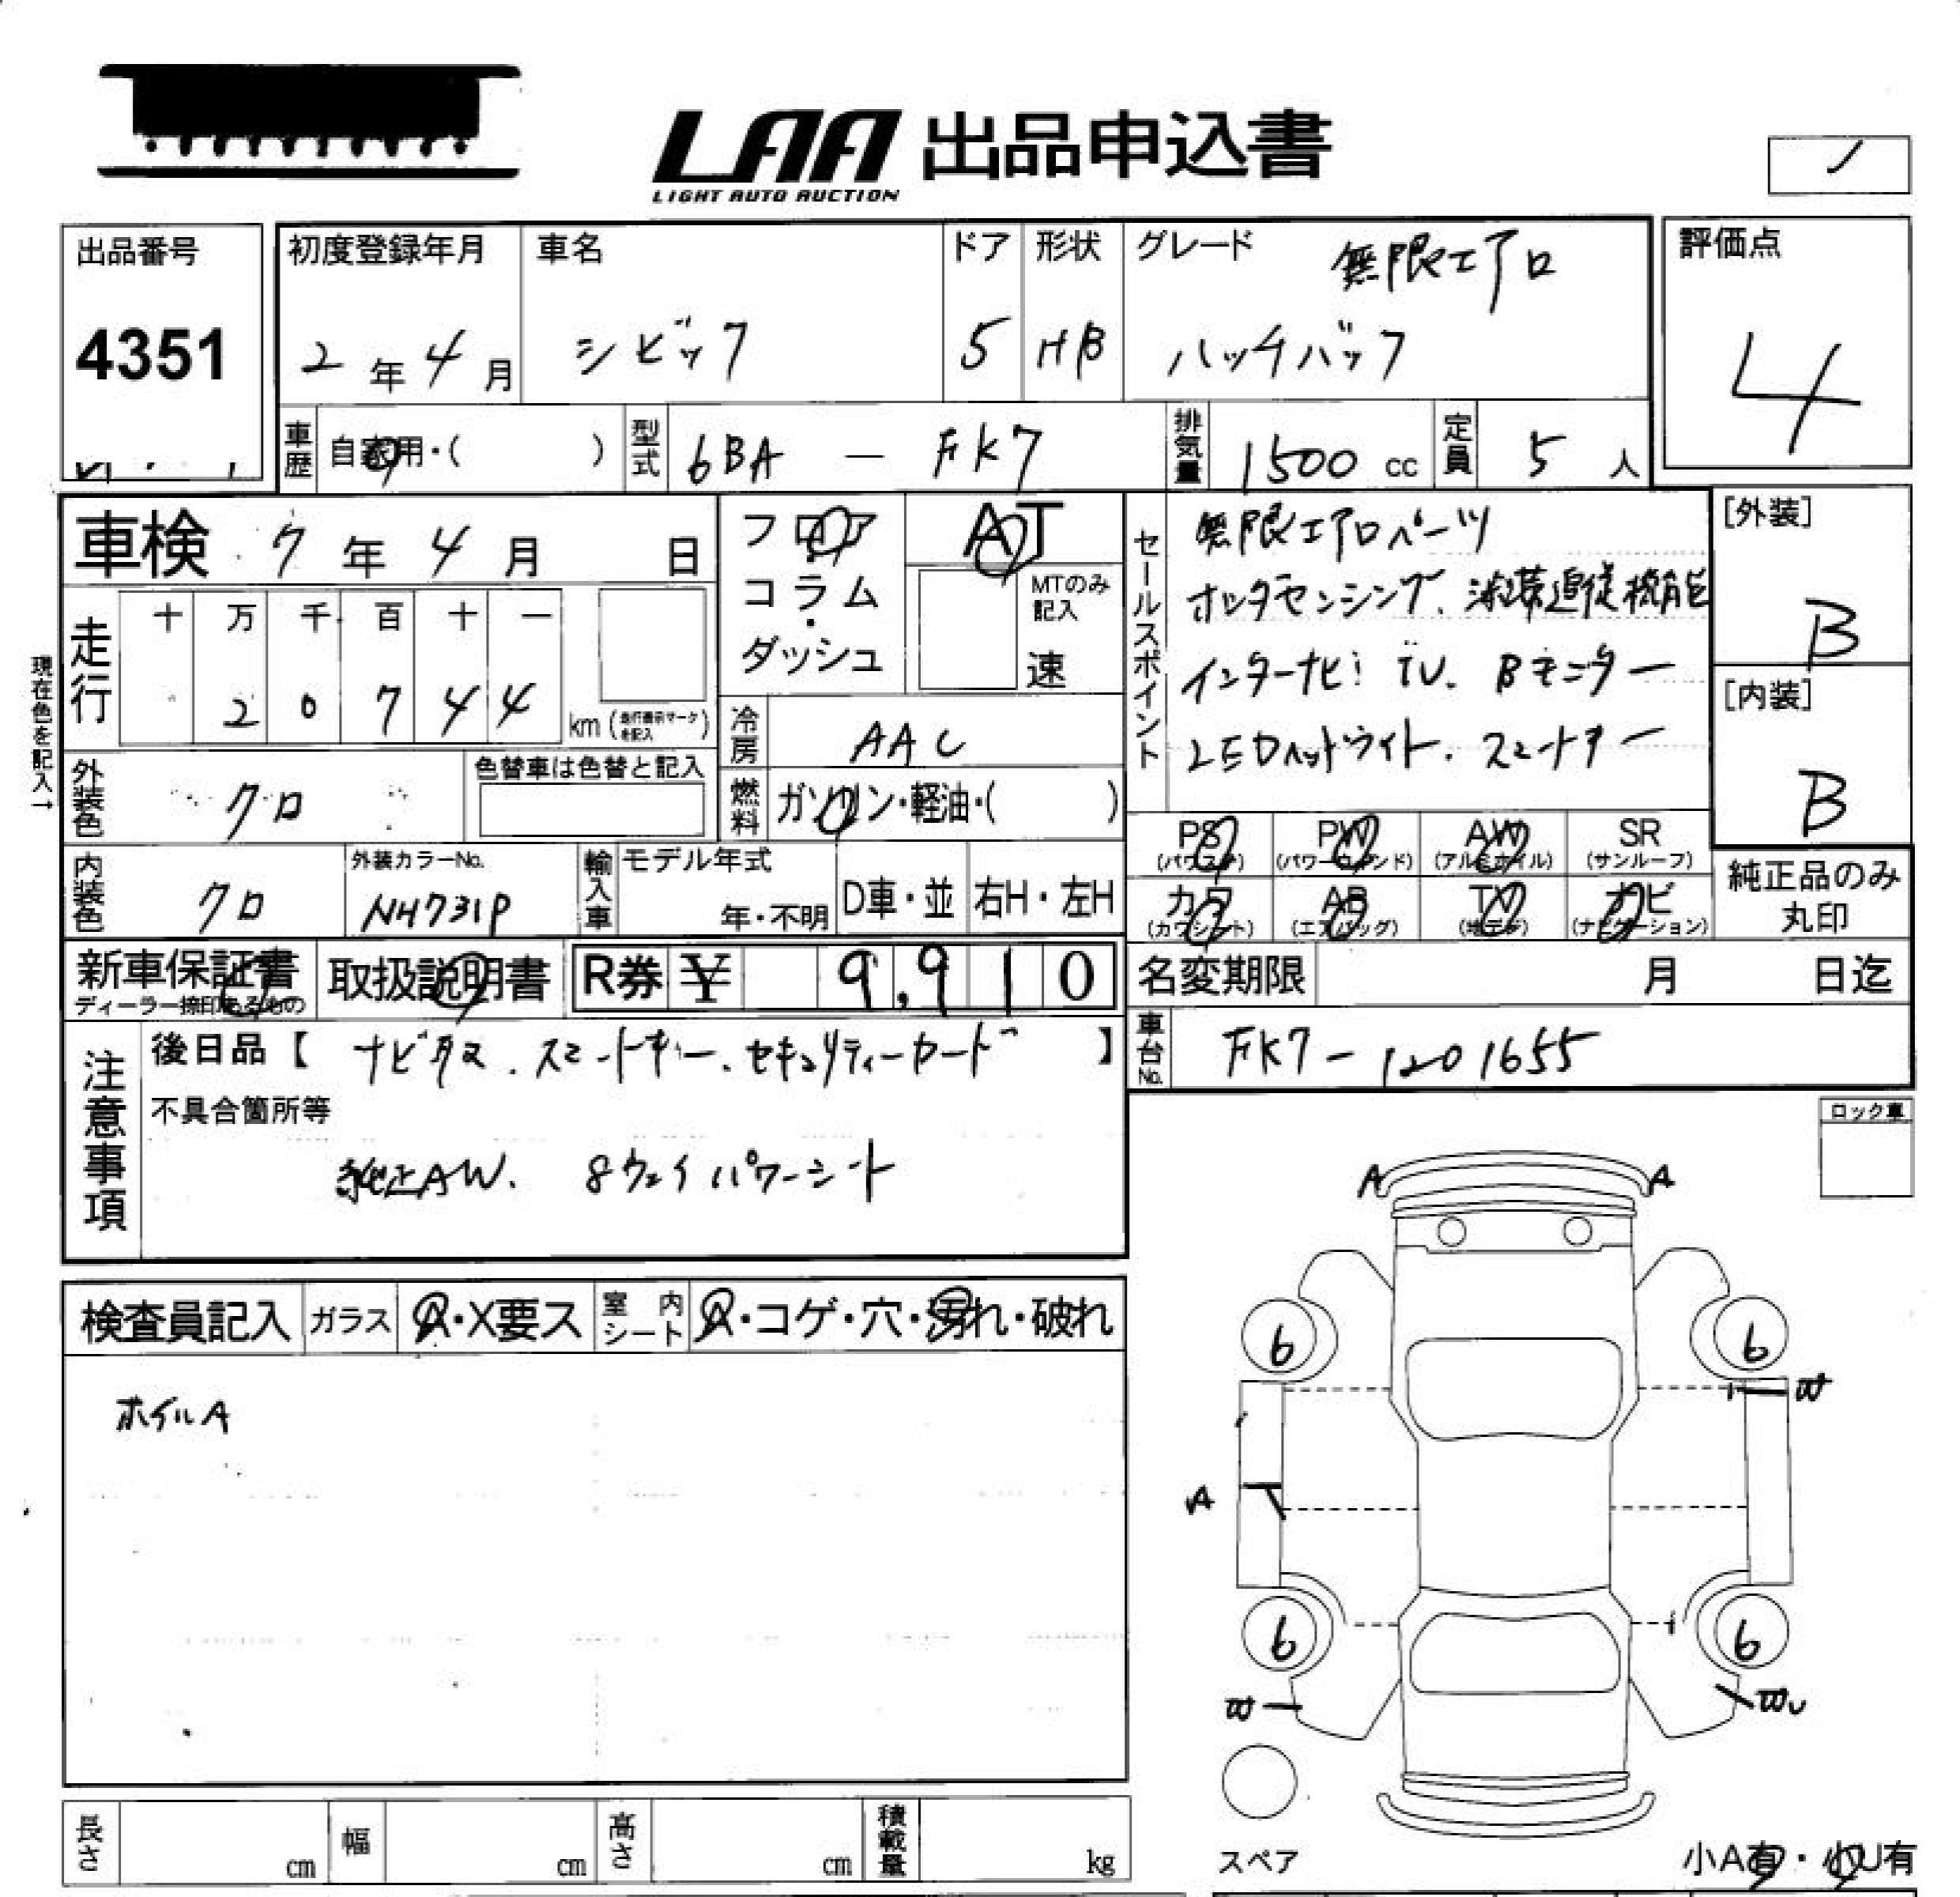 LAA 出品申込書
LIGHT AUTO AUCTION
出品番号
4351
初度登録年月
2年4月
車名
シビック
ドア
5
形状
HB
グレード
無限エアロ
ハッチバック
評価点
4
車歴
自家用・( )
型式
6BA - FK7
排気量
1500 cc
定員
5 人
車検 7年4月 日
フロア
コラム
・
ダッシュ
AT
MTのみ
記入
速
走行
十 万 千 百 十 一
2 0 7 4 4
km (走行表示マークを記入)
現在色を記入→
外装色
クロ
色替車は色替と記入
冷房
AAC
燃料
ガソリン・軽油・( )
内装色
クロ
外装カラーNo.
NH731P
輸入車
モデル年式
年・不明
D車・並
右H・左H
セールスポイント
無限エアロパーツ
ホンダセンシング、渋滞追従機能
インターナビ TV. Bモニター
LEDヘッドライト. スマートキー
[外装]
B
[内装]
B
PS
(パワステ)
PW
(パワーウィンド)
AW
(アルミホイル)
SR
(サンルーフ)
カワ
(カワシート)
AB
(エアバッグ)
TV
(地デジ)
ナビ
(ナビゲーション)
純正品のみ
丸印
新車保証書
ディーラー捺印ある物の
取扱説明書
R券 ¥ 9,910
名変期限 月 日迄
車台No.
FK7-1201655
注意事項
後日品【 ナビタス. スマートキー. セキュリティーカード 】
不具合箇所等
純正AW. 8ウェイパワーシート
ロック車
検査員記入
ガラス
A・X要ス
室内シート
A・コゲ・穴・汚れ・破れ
ホイルA
A A
6 6
W
A
6 6
W WU
スペア
小A有・小U有
長さ cm
幅 cm
高さ cm
積載量 kg